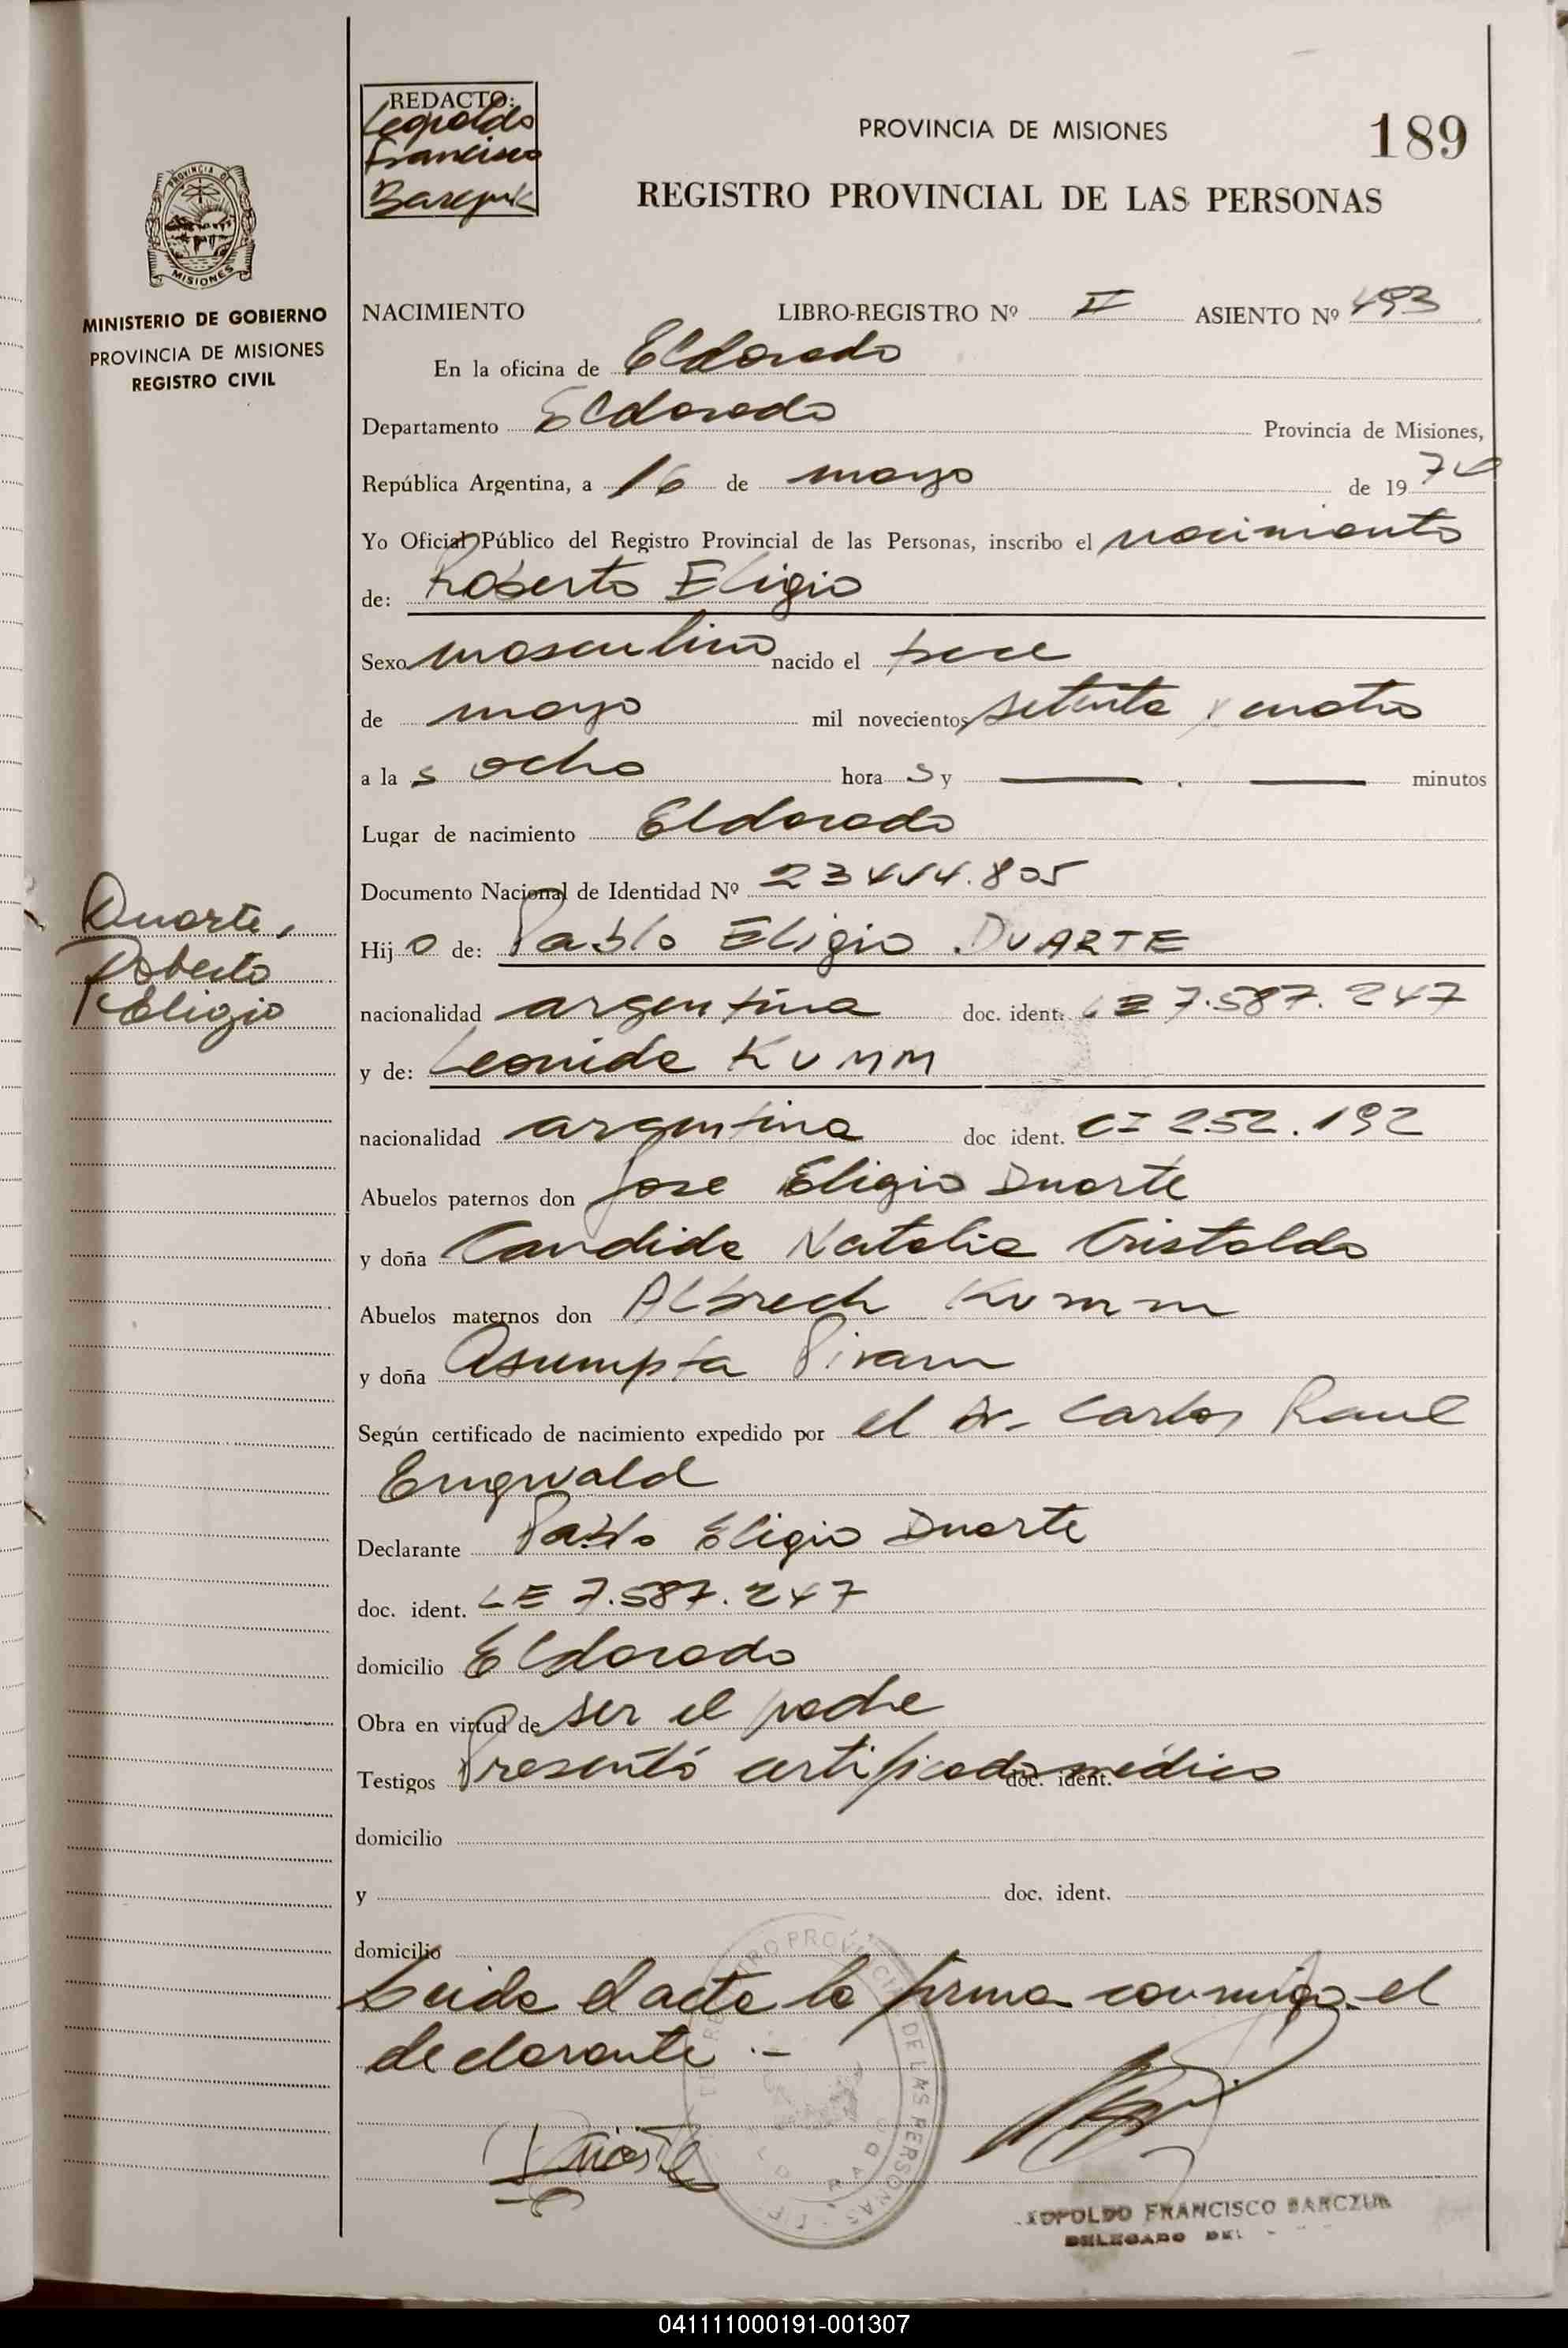 REDACTO:
Leopoldo
Francisco
PROVINCIA DE MISIONES
189
REGISTRO PROVINCIAL DE LAS PERSONAS
PROVINCIA DE
MISIONES
MINISTERIO DE GOBIERNO
PROVINCIA DE MISIONES
REGISTRO CIVIL
NACIMIENTO LIBRO-REGISTRO Nº II ASIENTO Nº 493
En la oficina de Eldorado
Departamento Eldorado Provincia de Misiones,
República Argentina, a 16 de mayo de 1974
Yo Oficial Público del Registro Provincial de las Personas, inscribo el nacimiento
de: Roberto Eligio
Sexo masculino nacido el trece
de mayo mil novecientos setenta y cuatro
a las ocho horas y — . — minutos
Lugar de nacimiento Eldorado
Documento Nacional de Identidad Nº 23444.805
Duarte,
Roberto
Eligio
Hijo de: Pablo Eligio DUARTE
nacionalidad argentina doc. ident. LE 7.587.247
y de: Leonida KUMM
nacionalidad argentina doc ident. CI 252.192
Abuelos paternos don Jose Eligio Duarte
y doña Candida Natalia Cristaldo
Abuelos maternos don Albrech Kumm
y doña Asumpta
Según certificado de nacimiento expedido por el Dr. Carlos Raul
Engwald
Declarante Pablo Eligio Duarte
doc. ident. LE 7.587.247
domicilio Eldorado
Obra en virtud de ser el padre
Testigos Presentó certificado médico doc. ident.
domicilio
y doc. ident.
domicilio
Leida el acta la firma conmigo el
declarante.-
Duarte
LEOPOLDO FRANCISCO BARCZUK
DELEGADO DEL
041111000191-001307